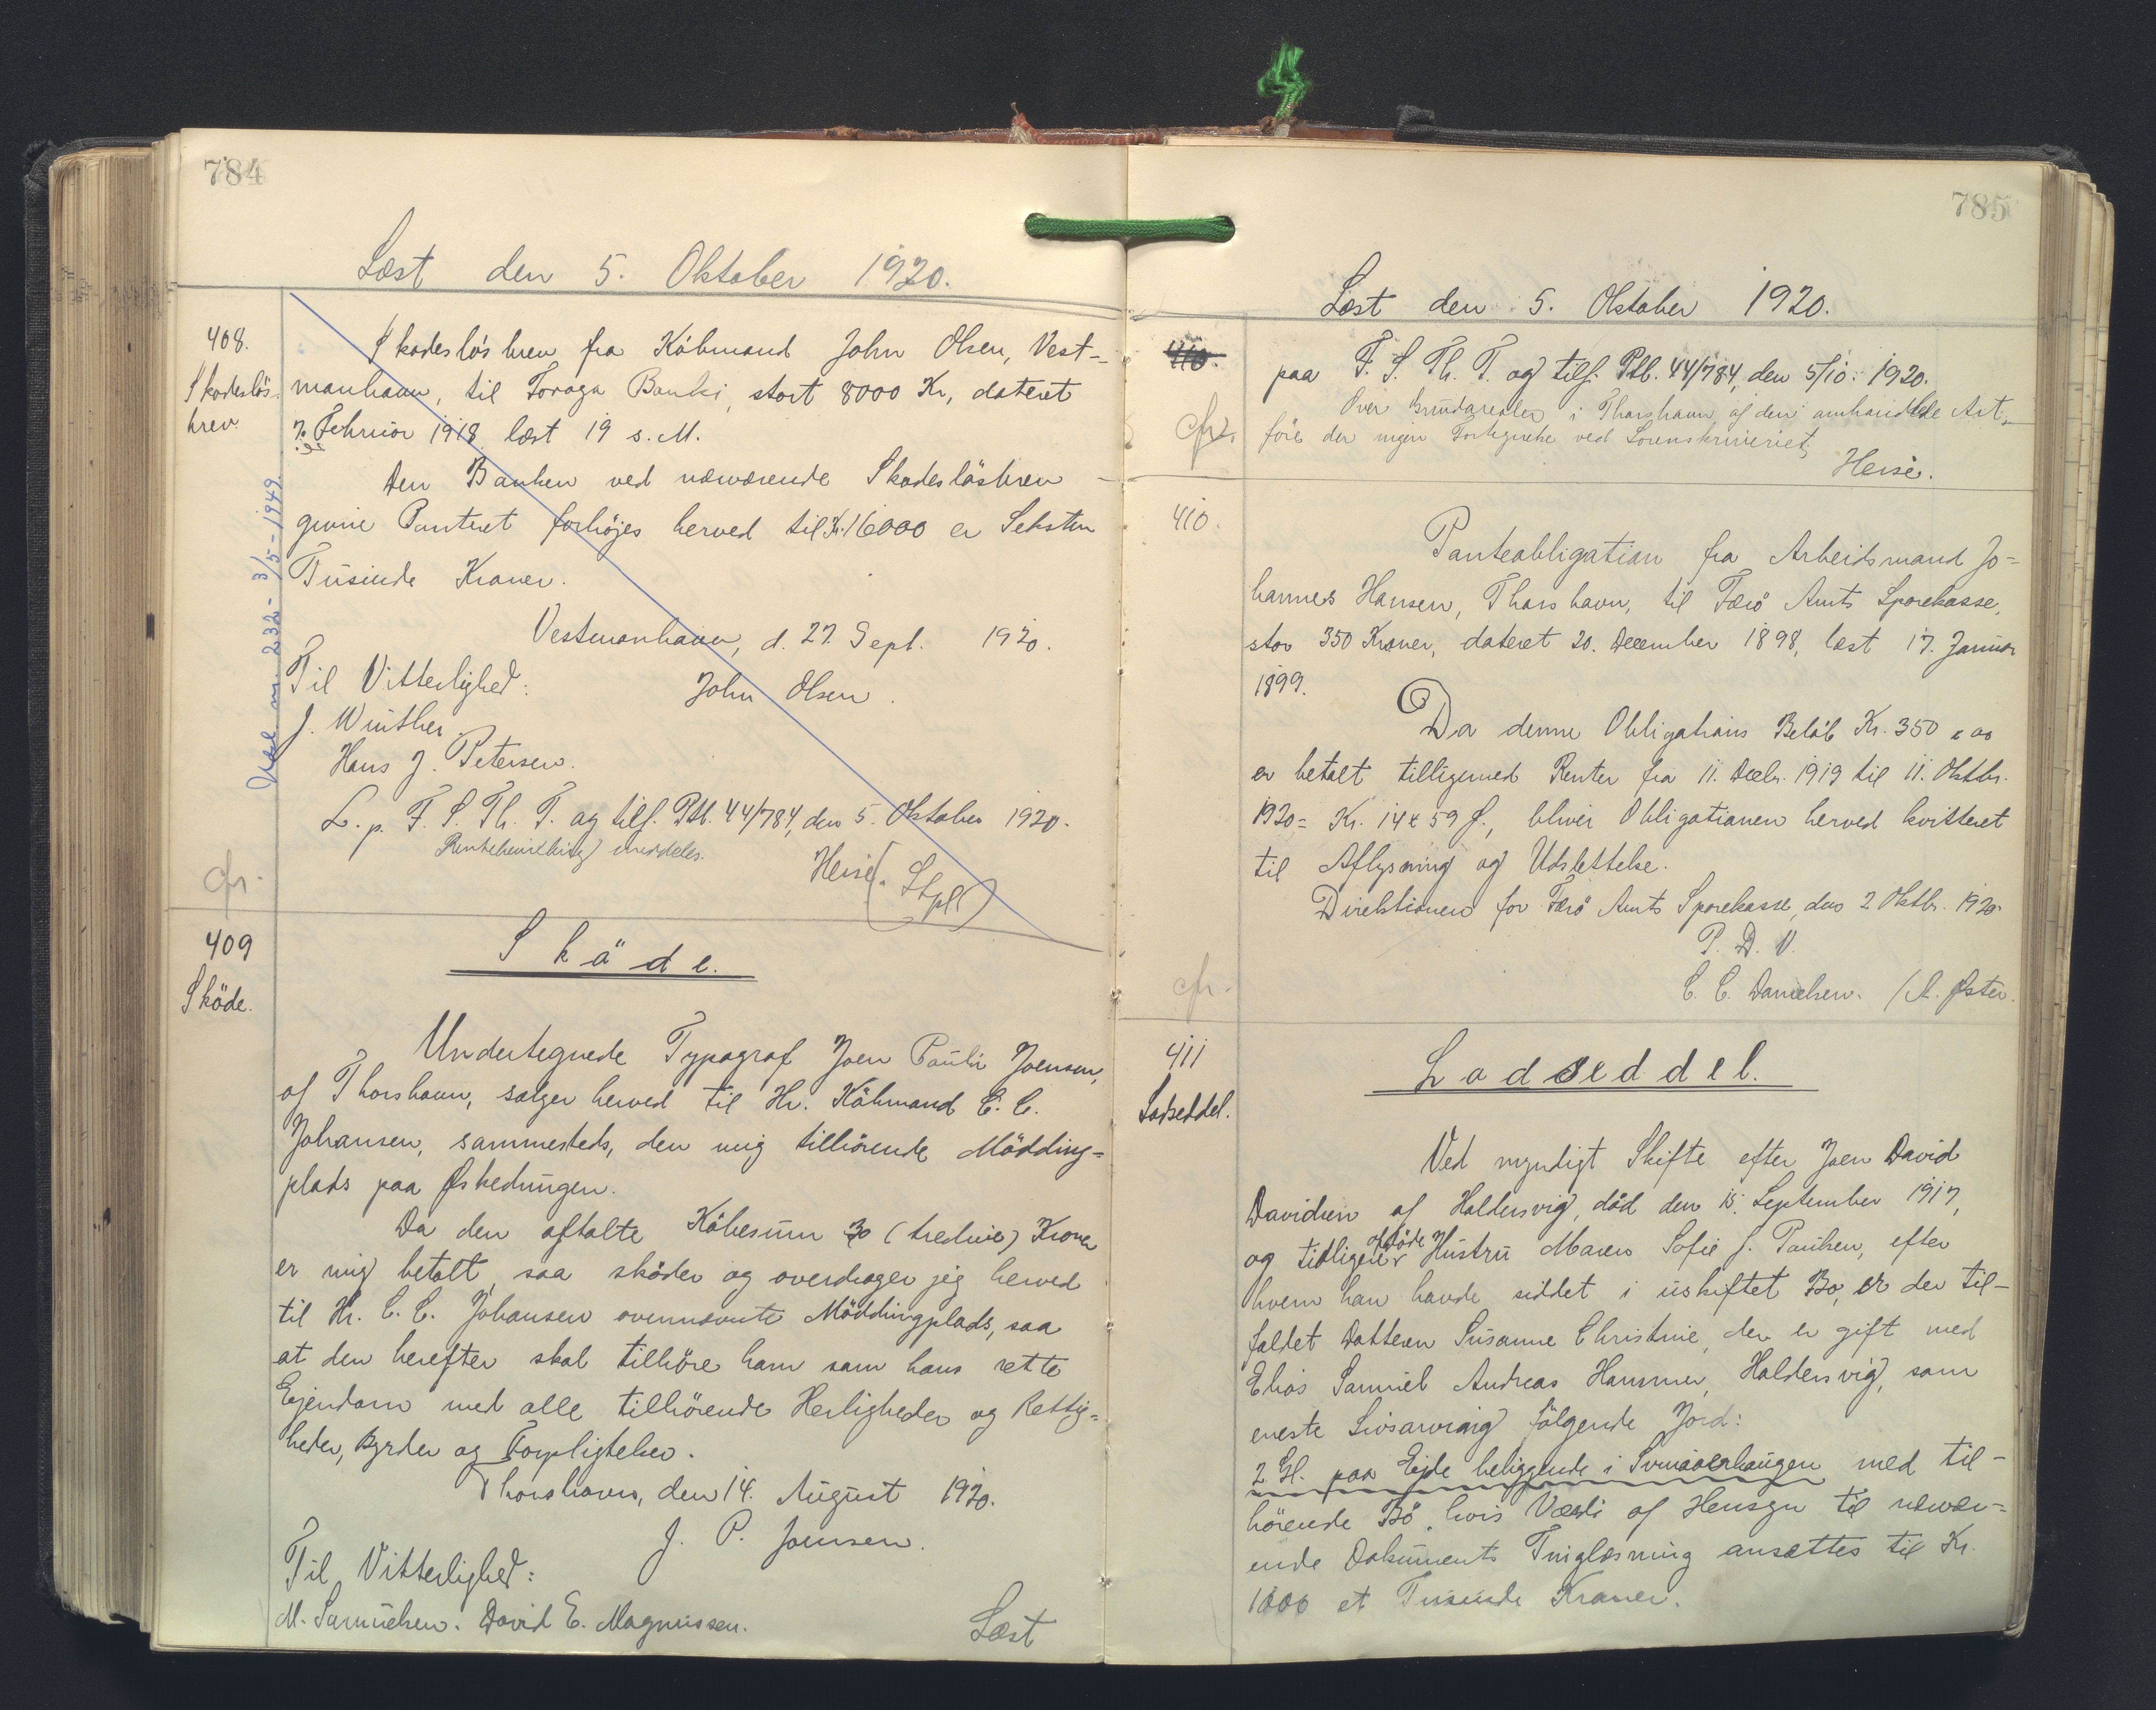 784
Læst den 5. Oktober 1920.
408.
Skadeslös-
brev.
Skadeslösbrev fra Köbmand John Olsen, Vest-
manhavn, til Foroya Banki, stort 8000 Kr, dateret
7. Februar 1918 læst 19 s. M.
Den Banken ved nærværende Skadeslösbrev
givne Panteret forhöjes herved til Kr. 16000 er Seksten
Tusinde Kroner.
Vestmanhavn, d. 27. Sept. 1920.
Til Vitterlighed:
John Olsen.
J. Winther.
Hans J. Petersen.
L. p. F. S. Th. T. og tilf. Ptb. 44/784, den 5. Oktober 1920.
meddeles.
Heise.
(Stpl)
232 - 3/5 - 1949
cfr.
409
Sköde.
Sköde.
Undertegnede Typograf Joen Pauli Joensen,
af Thorshavn, sælger herved til Hr. Köbmand C. C.
Johansen, sammesteds, den mig tilhörende Mödding=
plads paa Ørkedningen.
Da den aftalte Köbesum 30 (tredive) Kroner
er mig betalt, saa sköder og overdrager jeg herved
til Hr. C. C. Johansen ovennævnte Möddingplads, saa
at den herefter skal tilhöre ham som hans rette
Ejendom med alle tilhörende Herligheder og Rettig=
heder, Byrder og Forpligtelser.
Thorshavn, den 14. August 1920.
J. P. Joensen.
Til Vitterlighed:
M. Samuelsen. David E. Magnussen.
Læst
785
Læst den 5. Oktober 1920.
410.
paa F. S. Th. T. og tilf. Ptb. 44/784, den 5/10. 1920.
Over Grundarealer i Thorshavn af den omhandlede Art,
föres der ingen Fortegnelse ved Sorenskriveriet,
Heise.
cfr.
410.
Panteobligation fra Arbeidsmand Jo=
hannes Hansen, Thorshavn, til Færö Amts Sparekasse,
stor 350 Kroner, dateret 20. December 1898, læst 17. Januar
1899.
Da denne Obligations Belöb Kr. 350 " 00
er betalt tilligemed Renter fra 11. Decbr. 1919 til 11. Oktbr.
1920 = Kr. 14 " 59 f., bliver Obligationen herved kvitteret
til Aflysning og Udslettelse.
Direktionen for Færö Amts Sparekasse, den 2 Oktbr. 1920.
P. D. V.
C. C. Danielsen. / A. Øster.
cfr.
411
Ladseddel.
Ladseddel.
Ved myndigt Skifte efter Joen David
Davidsen af Haldersvig, död den 15. September 1917,
og tidligere afdöde Hustru Maren Sofie J. Poulsen, efter
hvem han havde siddet i uskiftet Bo, er der til-
faldet Datteren Susanne Christine, der er gift med
Elias Samuel Andreas Hammer, Haldersvig, som
eneste Livsarving fölgende Jord:
2 Gl. paa Ejde beliggende i Svinaaerhaugen med til-
hörende Bö, hvis Værdi af Hensyn til nærvær=
ende Dokuments Tinglæsning ansættes til Kr.
1000 et Tusinde Kroner.